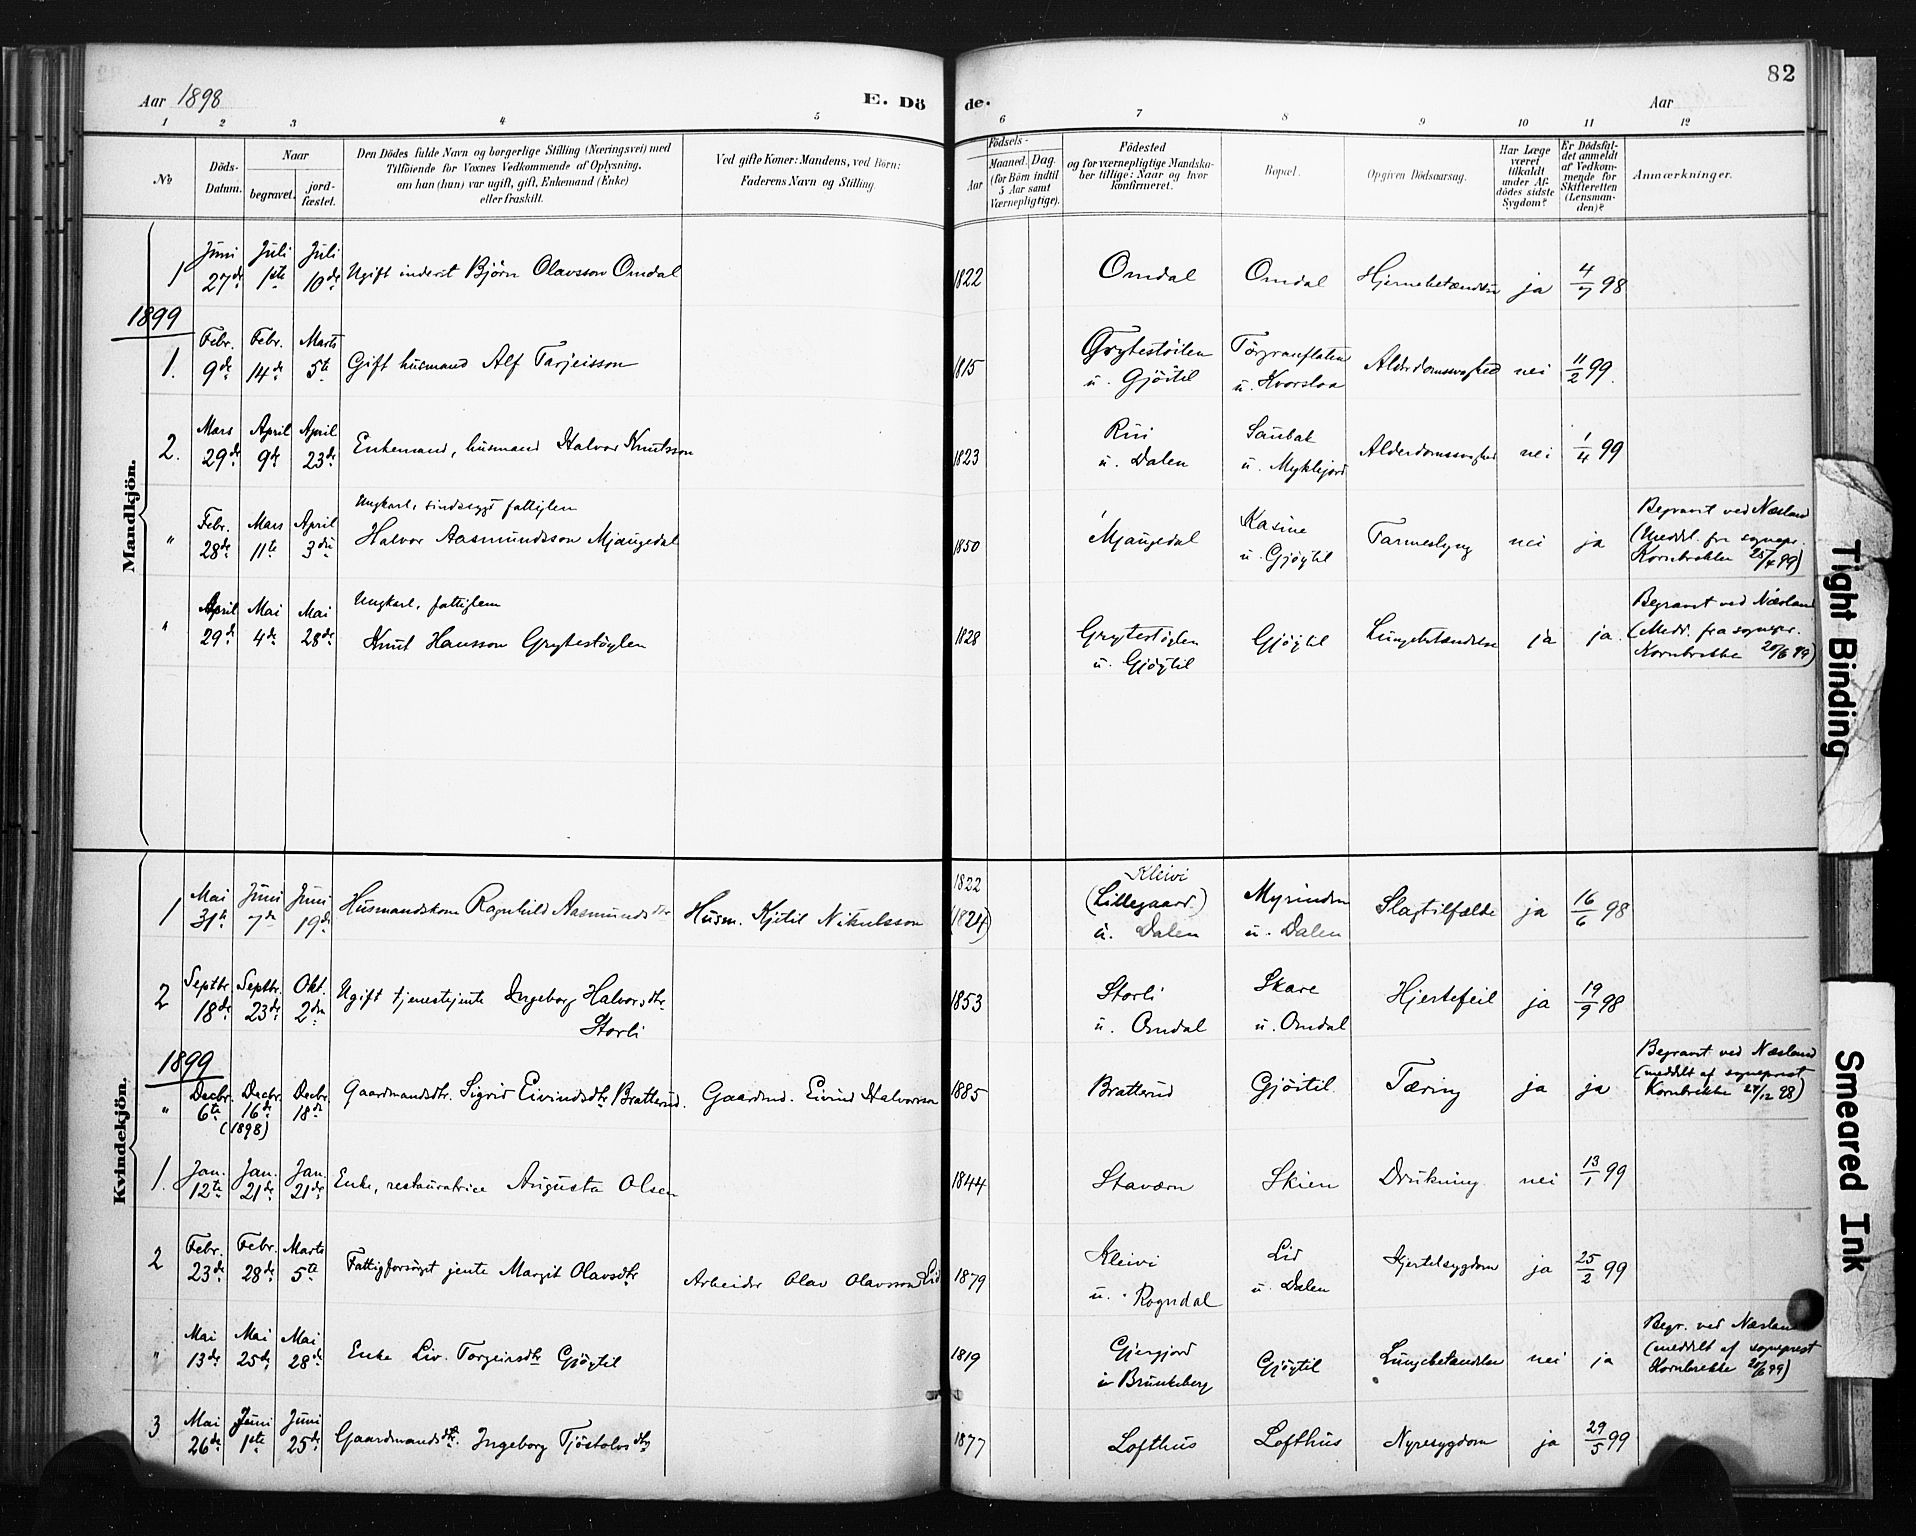 82
Aar 1898 E. Dö de. Aar
1 2 3 4 5 6 7 8 9 10 11 12
No
Döds-
Datum.
Naar
begravet.
jord-
fæstet.
Den Dödes fulde Navn og borgerlige Stilling (Næringsvei) med
Tilföiende for Voxnes Vedkommende af Oplysning,
om han (hun) var ugift, gift, Enkemand (Enke)
eller fraskilt.
Ved gifte Koner: Mandens, ved Börn:
Faderens Navn og Stilling.
Födsels-
Aar
Maaned. Dag.
(for Börn indtil
5 Aar samt
Værnepligtige).
Födested
og for værnepligtige Mandska-
ber tillige: Naar og hvor
konfirmeret.
Bopæl.
Opgiven Dödsaarsag.
Har Læge
været
tilkaldt
under Af-
dödes sidste
Sygdom?
Er Dödsfal-
det anmeldt
af Vedkom-
mende for
Skifteretten
(Lensman-
den)?
Anmærkninger.
Mandkjön.
Juni Juli Juli
1 27de 1ste 10de Ugift inderst Björn Olavsson Omdal 1822 Omdal Omdal Hjernebetændelse ja 4/7 98
1899
Febr. Febr. Marts
1. 9de 14de 5te Gift husmand Alf Tarjeisson 1815 Grytestöilen Torgranflaten Alderdomssvaghed nei 11/2 99.
u. Gjöitil u. Kvorsloa
Mars April April
2. 29de 9de 23de Enkemand, husmand Halvor Knutsson 1823 Rui Saubak Alderdomssvaghed nei 1/4 99
u. Dalen u. Myklejord
Ungkarl, sindssygt fattiglem
" Febr. Mars April
28de 11te 3die Halvor Aasmundsson Mjaugedal 1850 Mjaugedal Kasine Tarmeslyng nei ja Begravet ved Næsland
u. Gjöytil (Meddt. fra sognepr.
Kornbrekke 25/4 99)
Ungkarl, fattiglem
" April Mai Mai
29de 4de 28de Knut Hansson Grytestöylen 1828 Grytestöylen Gjöytil Lungebetændelse ja ja Begravet ved Næsland
u. Gjöytil (Medd. fra sognepr.
Kornbrekke 20/6 99)
Kvindekjön.
1822 Kleivi
Mai Juni Juni
1 31te 7de 19de Husmandskone Ragnhild Aasmundsdtr Husm. Kjetil Nikulsson (1824) (Lillegaard.) Myrinden Slagtilfælde ja 16/6 98
u. Dalen u. Dalen
Septbr. Septbr. Okt.
2 18de 23de 2den Ugift tjenestejente Ingeborg Halvorsdtr 1853 Storli Skare Hjertefeil ja 19/9 98
Storli u. Omdal u. Omdal
1899
Decbr. Decbr. Decbr.
" 6te 16de 18de Gaardmandsdtr. Sigrid Eivindsdtr Bratterud. Gaardmd. Eivind Halvorsen 1885 Bratterud Gjöitil Tæring ja ja Begravet ved Næsland
(1898) (meddelt af sogneprest
Kornbrekke 27/12 98)
Jan. Jan. Jan.
1. 12te 21de 21de Enke, restauratrice Augusta Olsen 1844 Staværn Skien Drukning nei 13/1 99
Febr. Febr. Marts
2 23de 28de 5te Fattigforsörget jente Margit Olavsdtr Arbeider Olav Olavsson Lid 1879 Kleivi Lid Kjertelsygdom ja 25/2 99
u. Rogndal u. Dalen
Mai Mai Mai
" 13de 25de 28de Enke Liv. Torgeirsdtr Gjöytil 1819 Gjergjord Gjöytil Lungebetændelse nei ja Begr. ved Næsland
i Brunkeberg (meddelt af sogneprest
Kornbrekke 20/6 99)
Mai Juni Juni
3 26de 1ste 25de Gaardmandsdtr. Ingeborg Tjöstolvsdtr 1877 Lofthus Lofthus Nyresygdom ja 29/5 99
Tight Binding
Smeared Ink